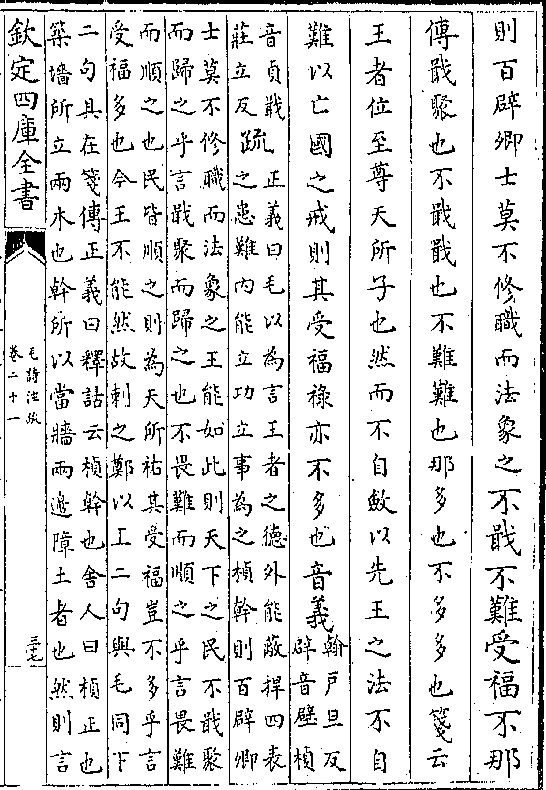 則百辟卿士莫不修職而法象之不戢不難受福不那
傳戢聚也不戢戢也不難難也那多也不多多也箋云
王者位至尊天所子也然而不自斂以先王之法不自
難以亡國之戒則其受福祿亦不多也音義
翰戶旦反
辟音璧楨
音貞戢
莊立反
疏
正義曰毛以為言王者之德外能蔽捍四表
之患難内能立功立事為之楨幹則百辟卿
士莫不修職而法象之王能如此則天下之民不戢聚
而歸之乎言戢聚而歸之也不畏難而順之乎言畏難
而順之也民皆順之則為天所祐其受福豈不多乎言
受福多也今王不能然故刺之鄭以上二句與毛同下
二句具在箋傳正義曰釋詁云楨幹也舍人曰楨正也
築墻所立兩木也幹所以當牆兩邊障土者也然則言
欽定四庫全書
毛詩注疏
卷二十一
三七